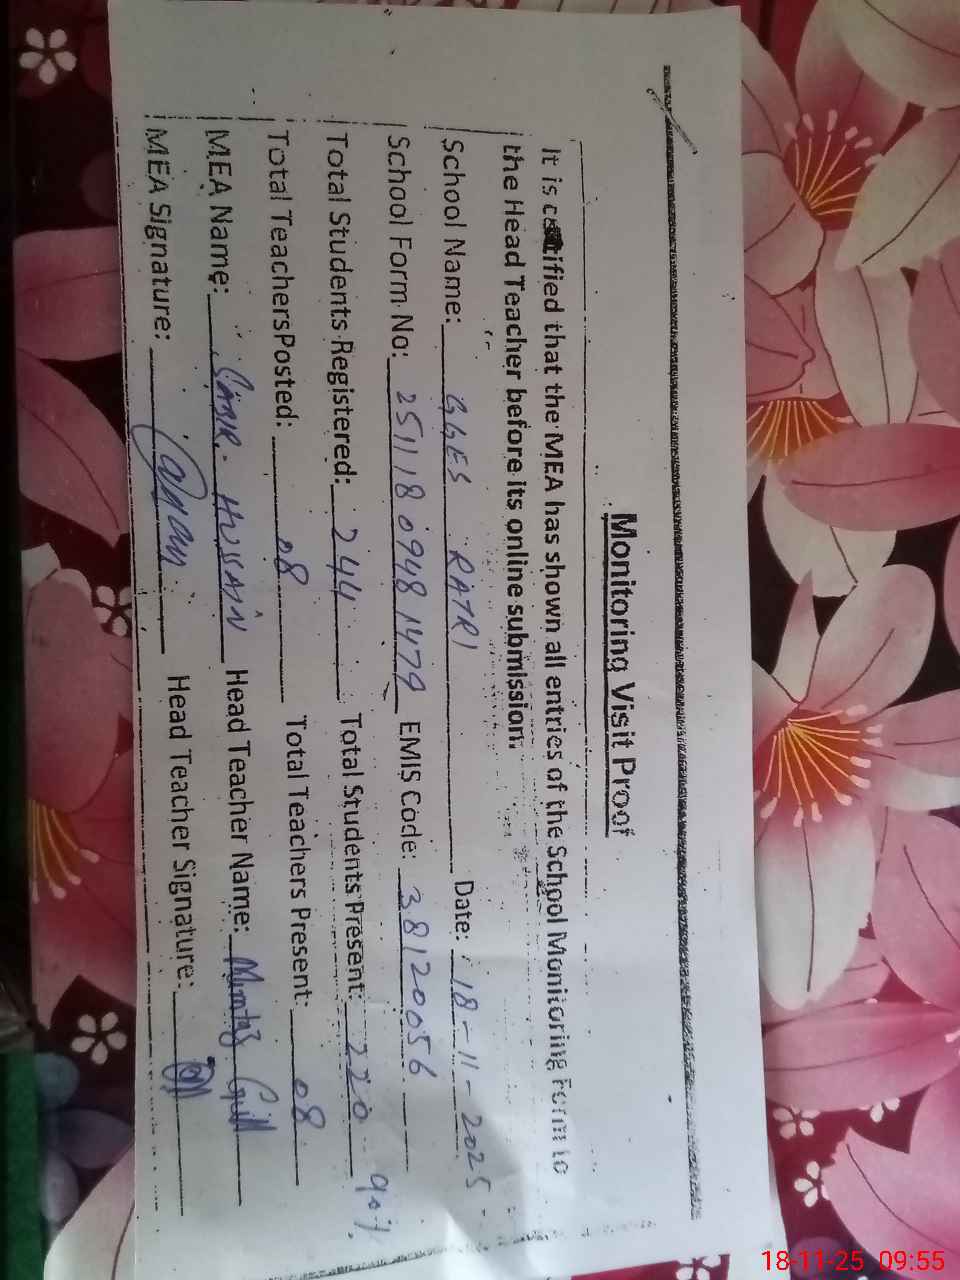 Monitoring Visit Proof
It is certified that the MEA has shown all entries of the School Monitoring Form to
the Head Teacher before its online submission.
School Name: GGES RATRI Date: 18-11-2025
School Form No: 251118 0948 1479 EMIS Code: 38120056
Total Students Registered: 244 Total Students Present: 220 90%
Total Teachers Posted: 08 Total Teachers Present: 08
MEA Name: SABIR HUSSAIN Head Teacher Name: Mumtaz Gull
MEA Signature: Head Teacher Signature:
18-11-25 09:55